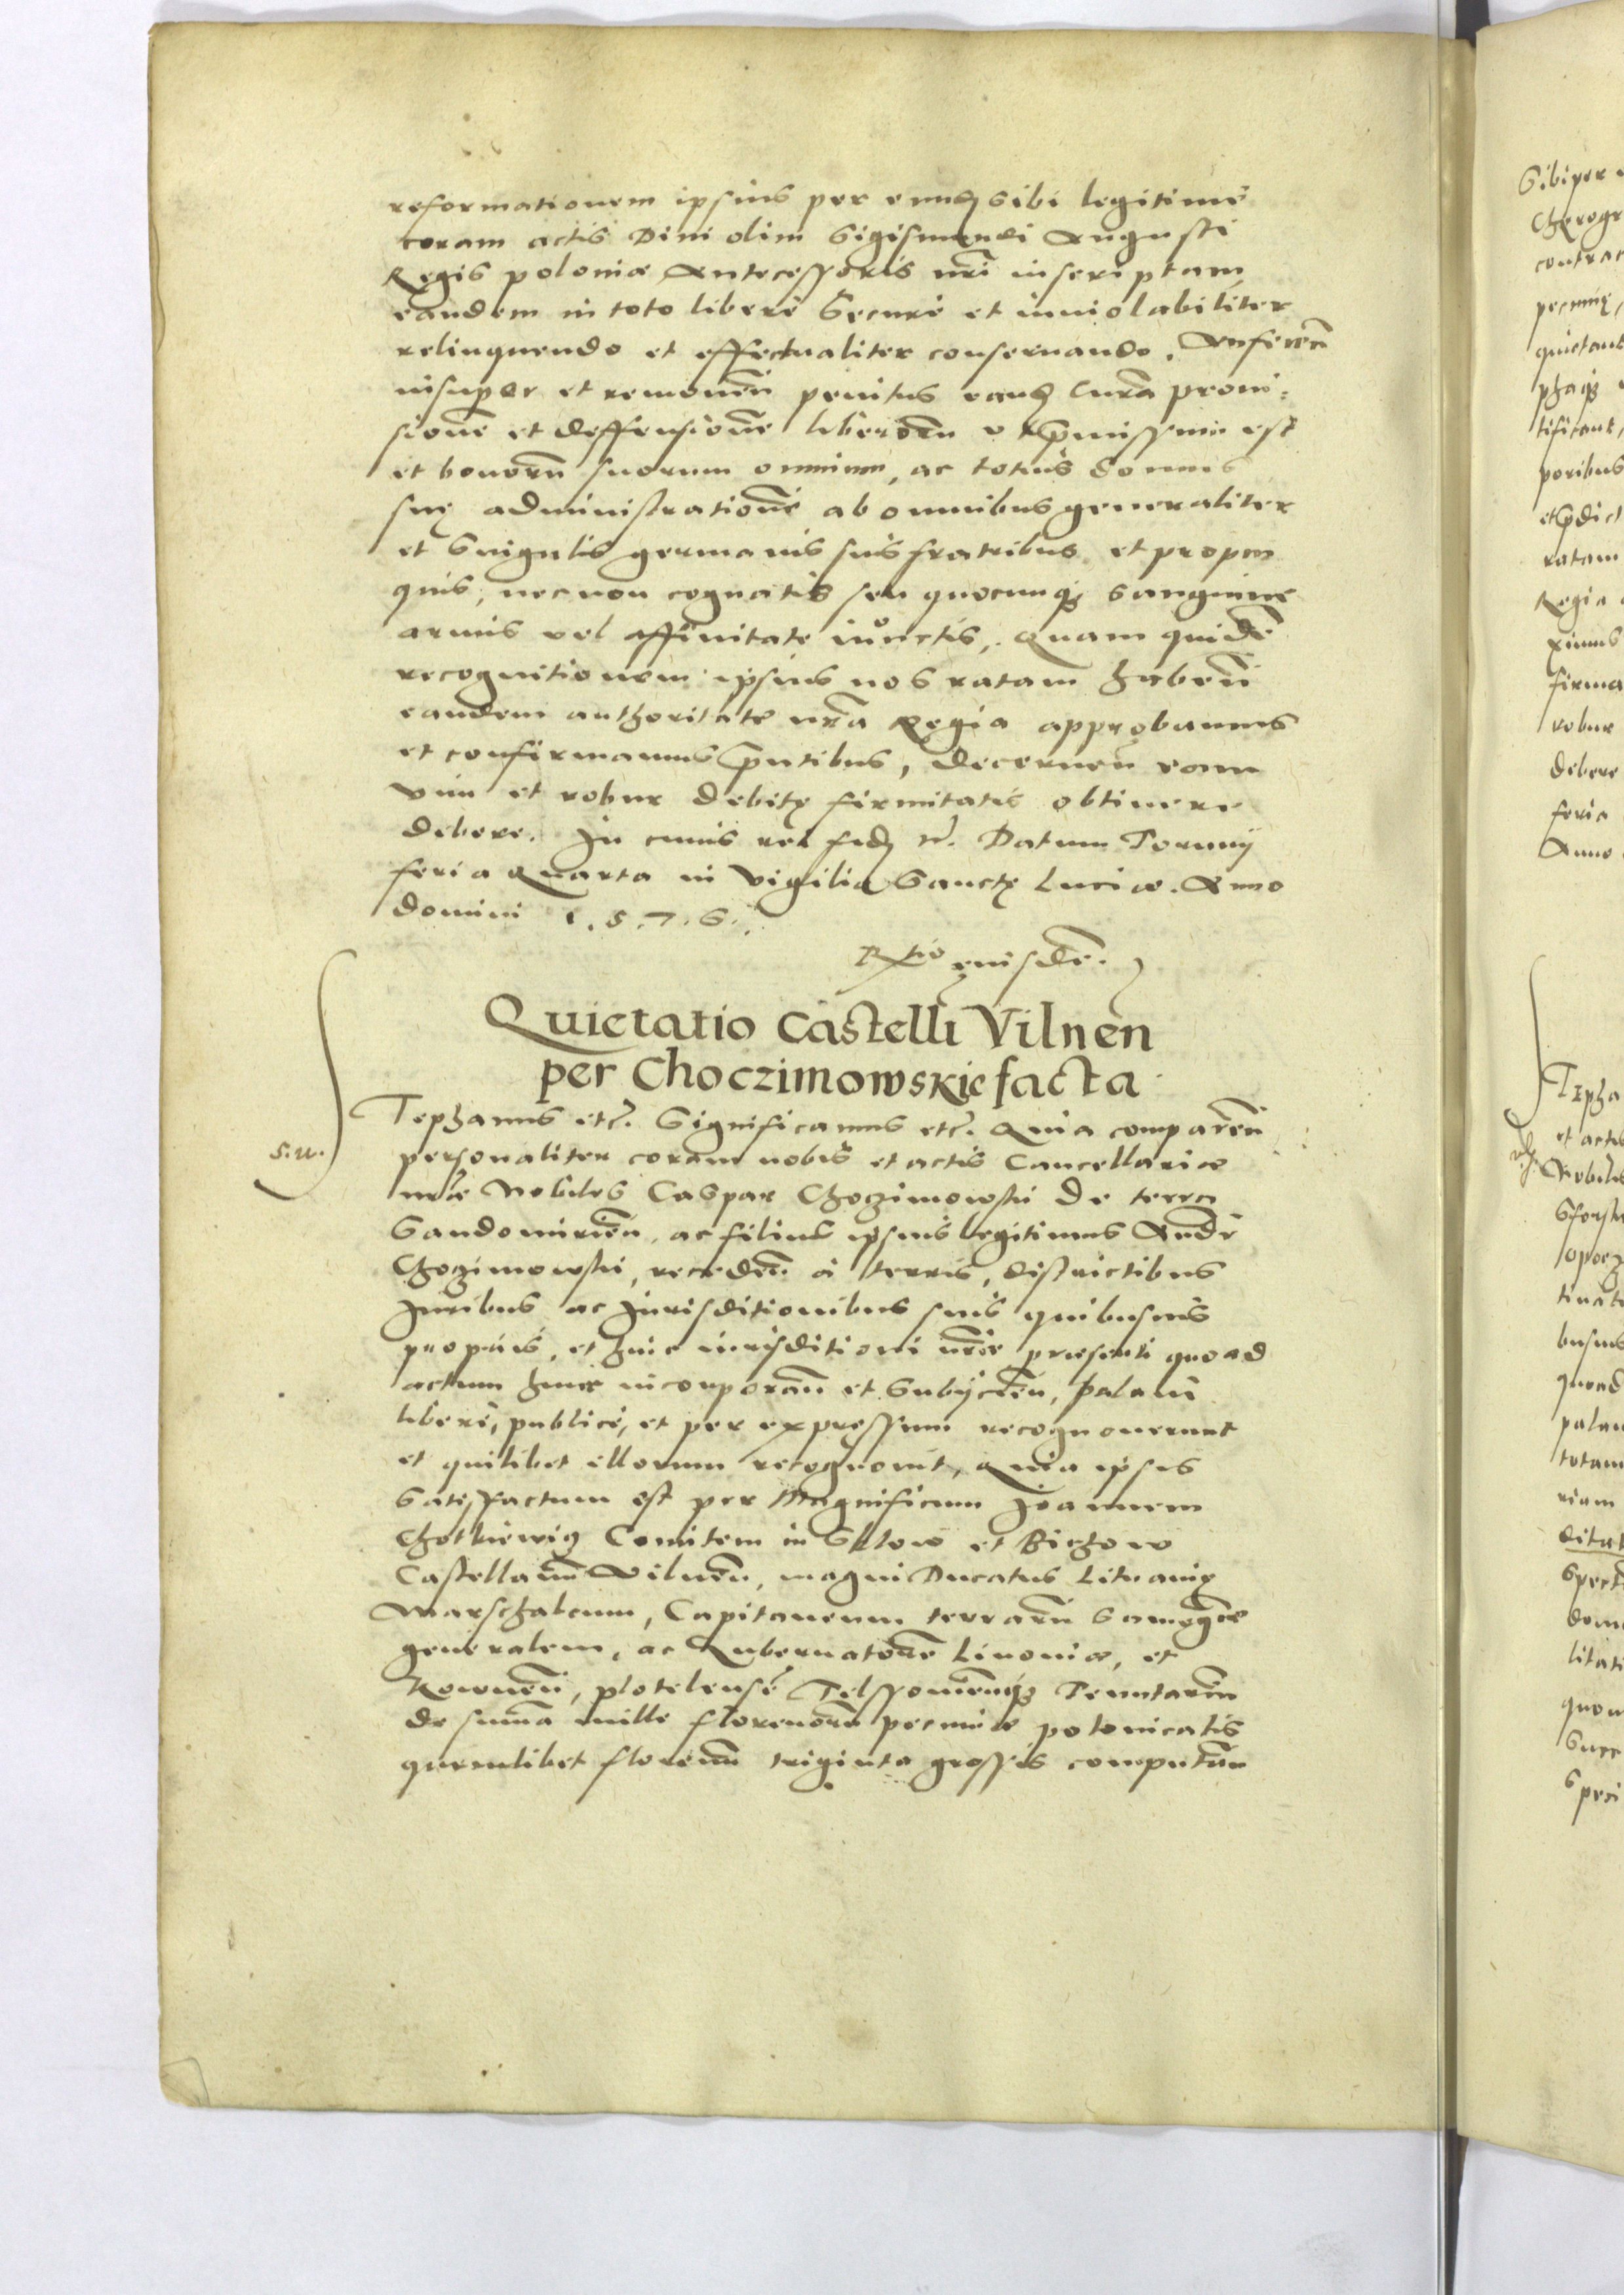 reformationem ipsius per eundē sibi legitime
coram actis Divi olim Sigismundi Augusti
Regis poloniæ Antecessoris nr̄i inscriptam
eandem in toto liberè Securè et inuiolabiliter
relinquendo et effectualiter conseruando. Auferen̄
insuper et remouen̄ penitus eand' curā proui:
sionē et deffensionē liberorū ut p̄missum est
et bonorū suorum omnium, ac totius domus
suę administrationē ab omnibus generaliter
et Singulis germanis suis fratribus et propin
quis, necnon cognatis seu quocunq; sanguine
armis vel affinitate iunctis, Quam quidē
recognitionem ipsius nos ratam haben̄
eandem authoritate nr̄a Regia approbamus
et confirmamus p̄ntibus, decernen̄ eam
vim et robur debitę firmitatis obtinere
debere. In cuius rei fid' etc̄. Datum Torunij
feria Quarta in Vigilia Sanctę Luciæ. Anno
domini 1.5.7.6.
R̄tio eiusdē.
Quietatio Castelli Vilnen
per Choczimowskie facta
S
Tephanus etc̄. Significamus etc̄. Quia comparen̄
s.w.
personaliter coram nobis et actis Cancellariæ
nr̄æ Nobiles Caspar Choczimowski de terra
Sandomirien̄, ac filius ipsius legitimus Andr̄
Choczimowski, receden̄ à terris, districtibus
Juribus ac Jurisditionibus suis quibusuis
proprijs, et huic iurisditioni nr̄æ præsenti quoad
actum hunc incorporan̄ et Subijcien̄, palam
liberè, publicè, et per expressum recognouerunt
et quilibet illorum recognouit, Quia ipsis
Satisfactum est per Magnificum Joannem
Chotkiewicz Comitem in Sklow et Bichow
Castellanū Vilnen̄, magni Ducatus Lituanię
Marschalcum, Capitaneum terrarū Samogitiæ
generalem, ac Gubernatorē Livoniæ, et
Kownen̄, plotelensē Telssouien̄q; Tenutariū
de summa mille florenorū pecuniæ polonicalis
quemlibet florenū triginta grossis computan̄